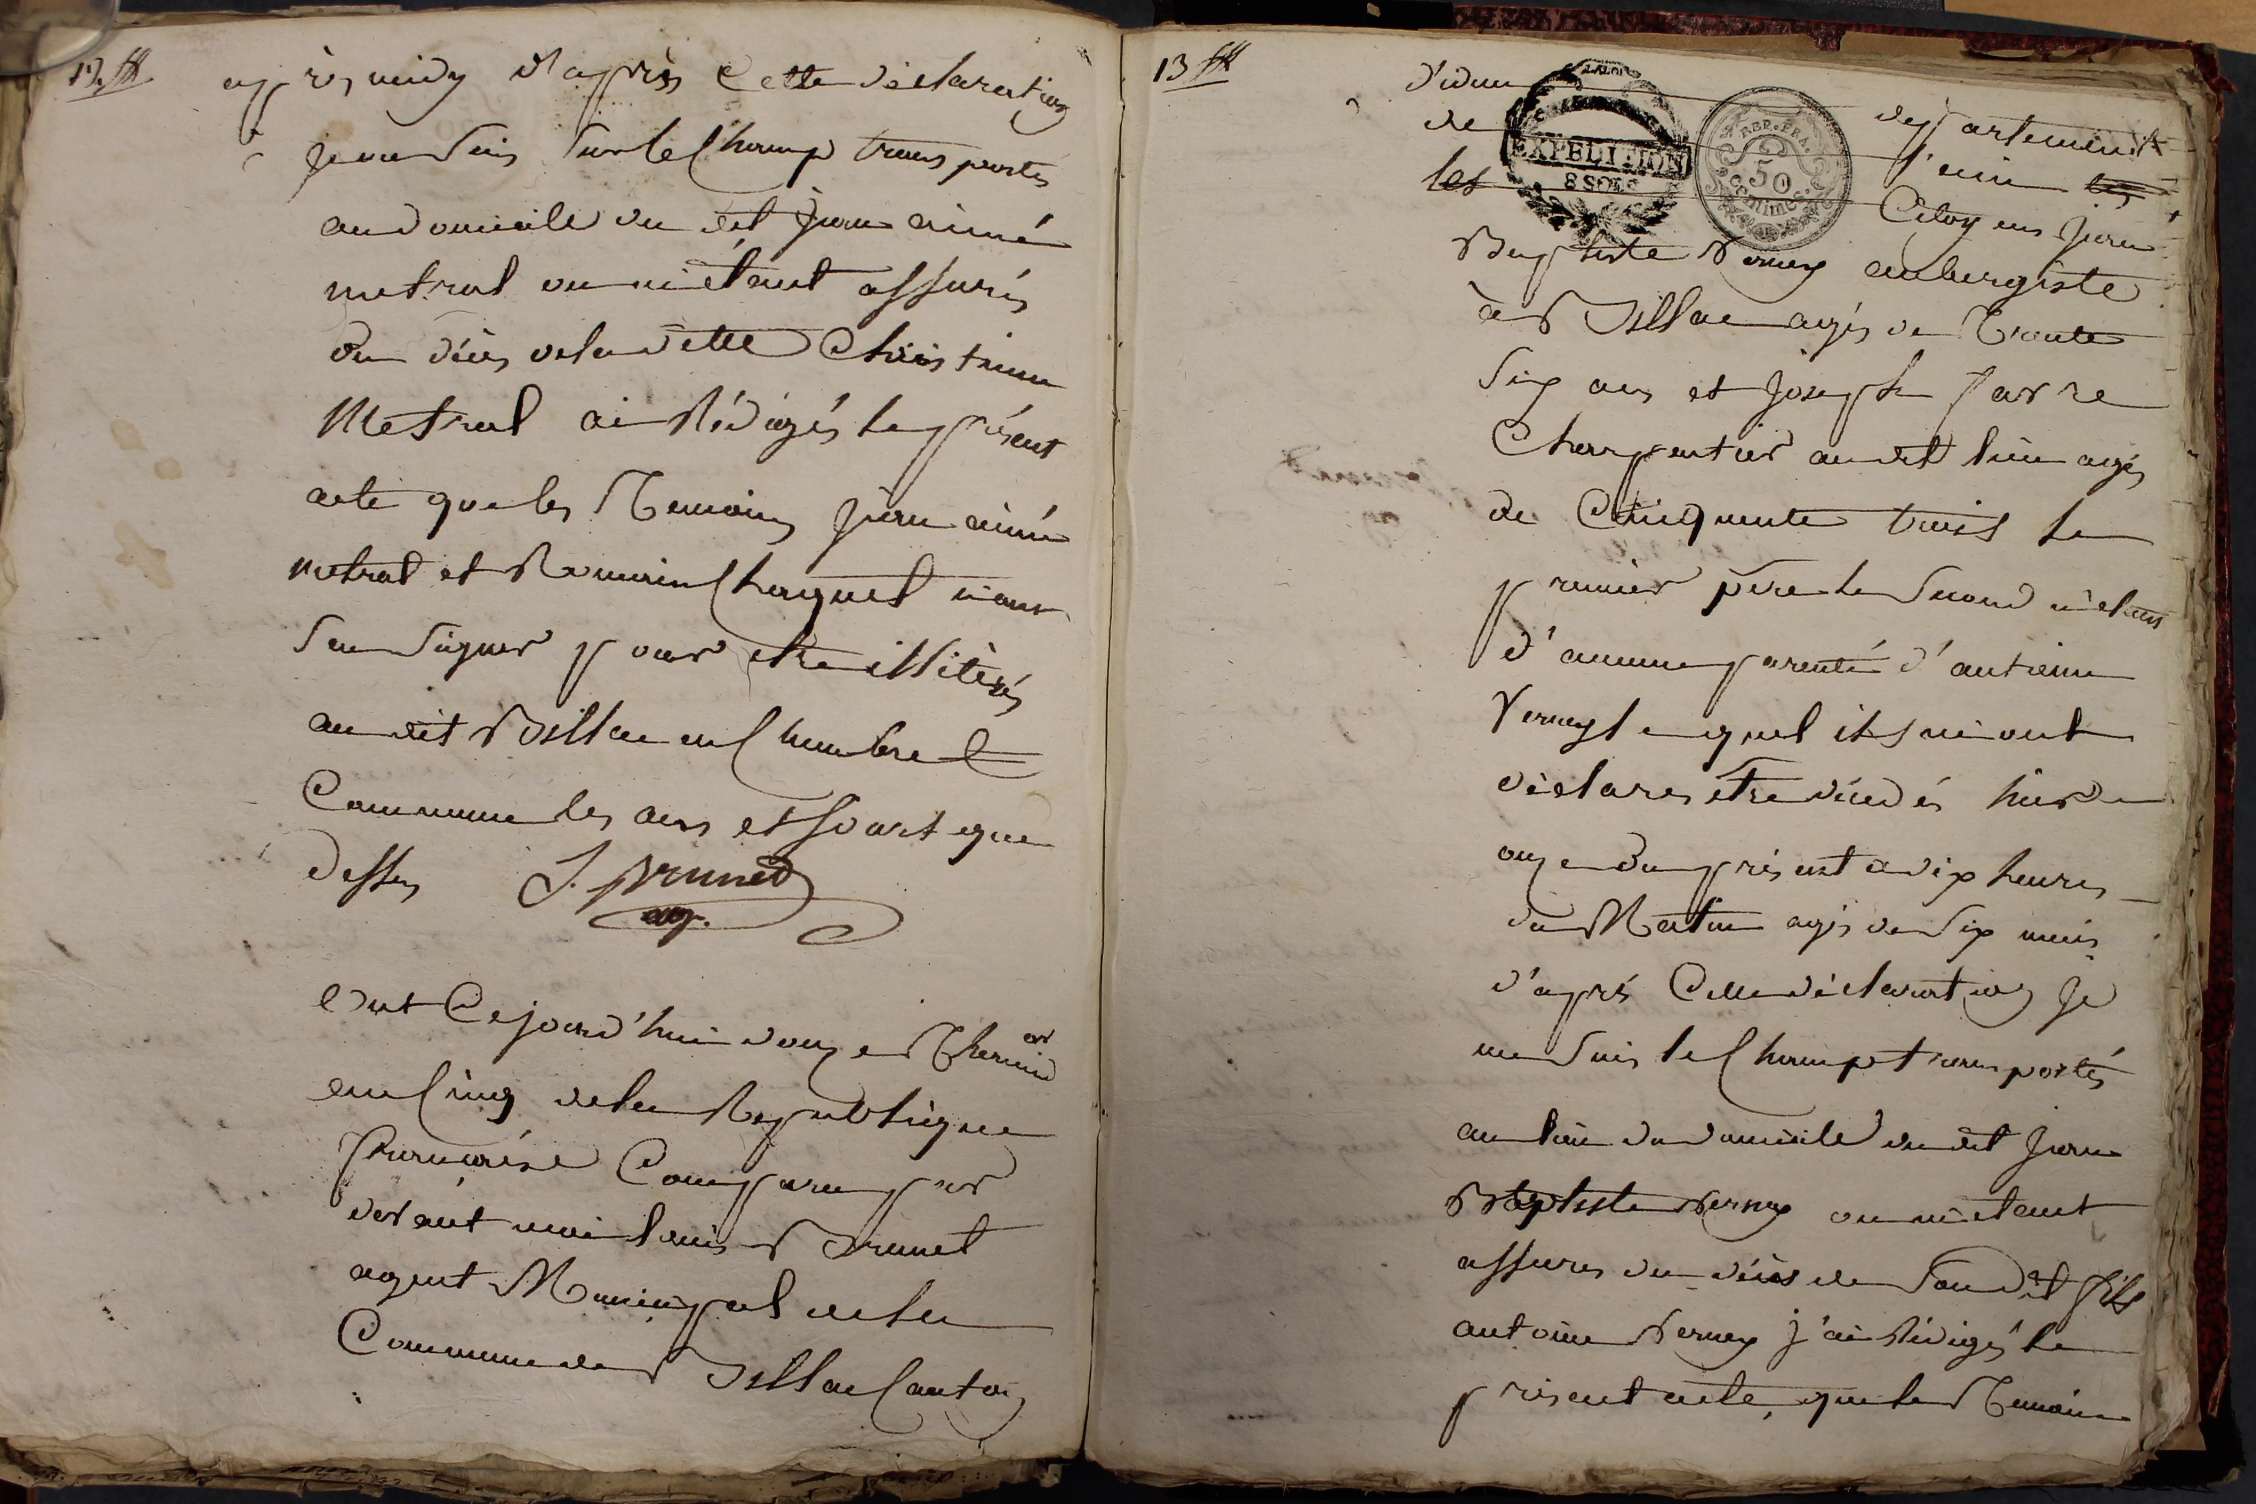 12
après midy d'après Cette déclaration
je me suis sur le Champ transportés
au domicile du dit jean aimé
metral ou m'étant assurés
du décès de la ditte Christinne
Metral ai Rédigés le présent
acte que les Temoins jean aimé
metral et Romain Chaquet n'ont
seu signer pour etre illiterés
au dit Billac en Chambre C
Commune les ans et jour que
dessus J. Brunet
ag.
Cejourd'hui douze Thermid
or
en Cinq de la Republique
francaise Comparu par
devant moi louis Brunet
agent Municipal de la
Commune de Billac Canton
13
d'idem
departement
de
l'ain
les
LA LOI
EXPEDITION
8 SOLS
REP. FRA.
50
centimes
Citoyens jean
Baptiste Verney aubergiste
à Billac agés de Trante
Six ans et joseph favre
Charpentier au dit lieu agés
de Cinquente trois le
premier père le second n'etant
d'aucune parenté d'antoine
Verney lequel ils m'ont
déclarés être décédés hier
onze du présent à dix heures
du Matin agés de Six mois
d'après Cette déclaration je
me suis le Champ transportés
au lieu du domicile du dit jean
Baptiste Verney ou m'etant
assures du décès de son dit fils
antoine Verney j'ai Rédigés le
présent acte, que le Temoin